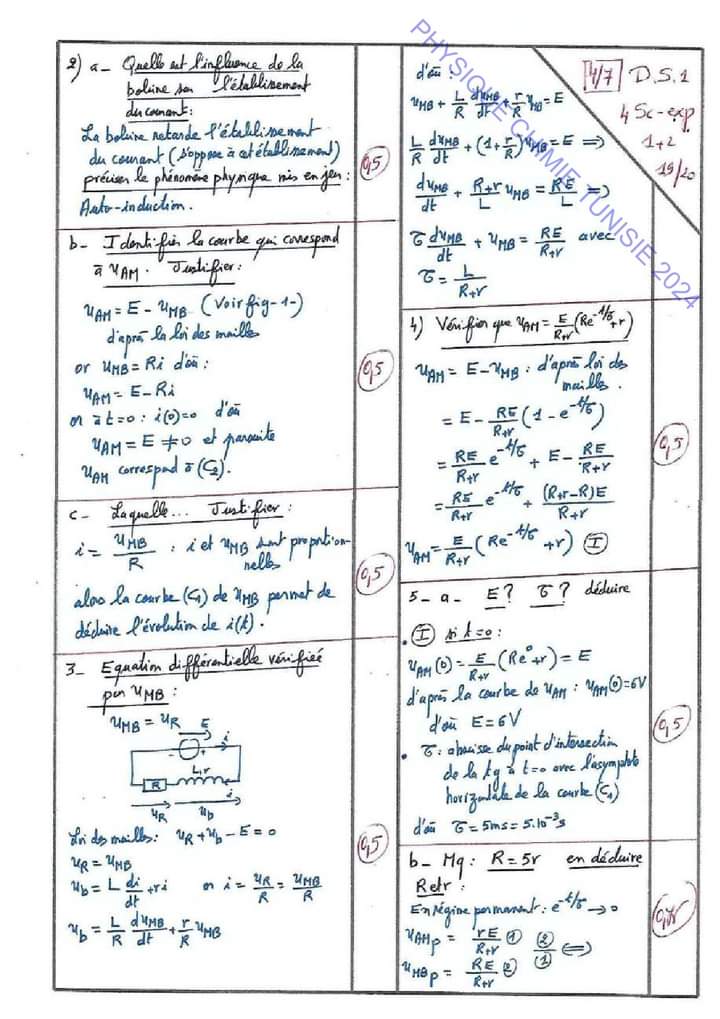 2) a - Quelle est l'influence de la
bobine sur l'établissement
du courant :
La bobine retarde l'établissement
du courant (s'oppose à cet établissement)
préciser le phénomène physique mis en jeu :
Auto-induction.
0,5
b - Identifier la courbe qui correspond
à uAM. Justifier :
uAM = E - uMB (Voir fig-1-)
d'après la loi des mailles
or uMB = Ri d'où :
uAM = E - Ri
or à t=0 : i(0)=0 d'où
uAM = E ≠ 0 et par suite
uAM correspond à (C2).
0,5
c - Laquelle... Justifier :
i = uMB/R : i et uMB sont proportion-
nelles
alors la courbe (C1) de uMB permet de
déduire l'évolution de i(t).
0,5
3 - Equation différentielle vérifiée
par uMB :
uMB = uR
E
- + i
R L,r
uR ub i
Loi des mailles : uR + ub - E = 0
uR = uMB
ub = L di/dt + ri or i = uR/R = uMB/R
ub = L/R duMB/dt + r/R uMB
0,5
4/7 D.S.1
4 Sc-exp
1+2
19/20
d'où :
uMB + L/R duMB/dt + r/R uMB = E
L/R duMB/dt + (1 + r/R) uMB = E ⇒
duMB/dt + R+r/L uMB = RE/L ⇒
τ duMB/dt + uMB = RE/R+r avec
τ = L/R+r
4) Vérifier que uAM = E/R+r (Re^-t/τ + r)
uAM = E - uMB : d'après loi des
mailles.
= E - RE/R+r (1 - e^-t/τ)
= RE/R+r e^-t/τ + E - RE/R+r
= RE/R+r e^-t/τ + (R+r-R)E/R+r
uAM = E/R+r (Re^-t/τ + r) I
0,5
5 - a - E? τ? déduire
• I si t=0 :
uAM(0) = E/R+r (Re^0 + r) = E
d'après la courbe de uAM : uAM(0) = 6V
d'où E = 6V
• τ : abscisse du point d'intersection
de la tg à t=0 avec l'asymptote
horizontale de la courbe (C1)
d'où τ = 5ms = 5.10^-3 s
0,5
b - Mq : R = 5r en déduire
R et r :
En régime permanent : e^-t/τ → 0
uAMp = rE/R+r 1 2/1 ⇔
uMBp = RE/R+r 2
PHYSIQUE CHIMIE TUNISIE 2024